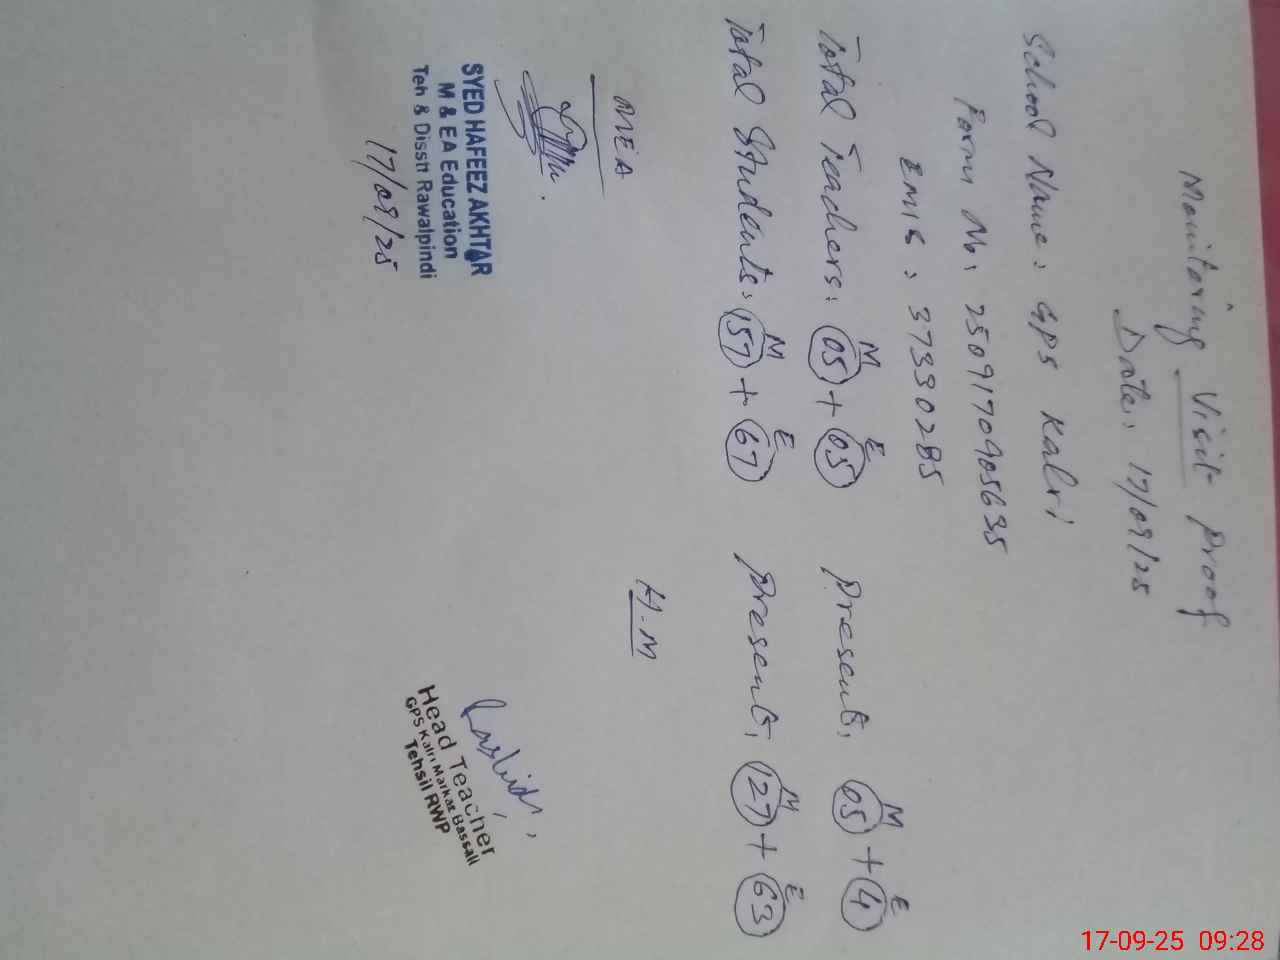 Monitoring Visit Proof
Date: 17/09/25
School Name: GPS Kalri
Form No: 250917090905635
EMIS: 37330285
Total Teachers: M 05 + E 05 Present: M 05 + E 4
Total Students: M 157 + E 67 Present: M 127 + E 63
MEA H.M
SYED HAFEEZ AKHTAR
M & EA Education
Teh & Disstt Rawalpindi
17/09/25
Head Teacher
GPS Kalri Markaz Bassali
Tehsil RWP
17-09-25 09:28